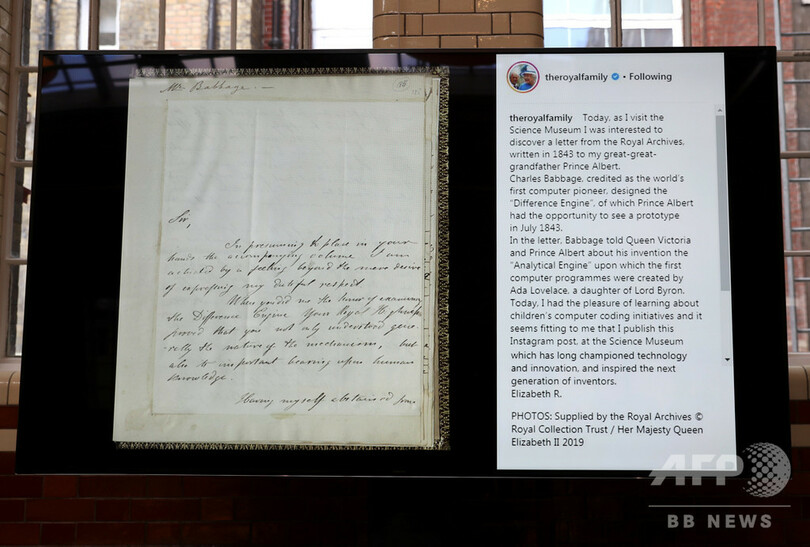 Mr Babbage. —
Sir,
In presuming to place in your
hands the accompanying volume I am
actuated by a feeling beyond the mere desire
of expressing my dutiful respect
When you did me the honor of examining
the Difference Engine Your Royal Highness
proved that you not only understood gene-
rally the nature of the mechanism, but
also its important bearing upon human
knowledge.
Having myself abstained from
theroyalfamily • Following
theroyalfamily Today, as I visit the
Science Museum I was interested to
discover a letter from the Royal Archives,
written in 1843 to my great-great-
grandfather Prince Albert.
Charles Babbage, credited as the world's
first computer pioneer, designed the
"Difference Engine", of which Prince Albert
had the opportunity to see a prototype
in July 1843.
In the letter, Babbage told Queen Victoria
and Prince Albert about his invention the
"Analytical Engine" upon which the first
computer programmes were created by
Ada Lovelace, a daughter of Lord Byron.
Today, I had the pleasure of learning about
children's computer coding initiatives and it
seems fitting to me that I publish this
Instagram post, at the Science Museum
which has long championed technology
and innovation, and inspired the next
generation of inventors.
Elizabeth R.
PHOTOS: Supplied by the Royal Archives ©
Royal Collection Trust / Her Majesty Queen
Elizabeth II 2019
AFP
BB NEWS